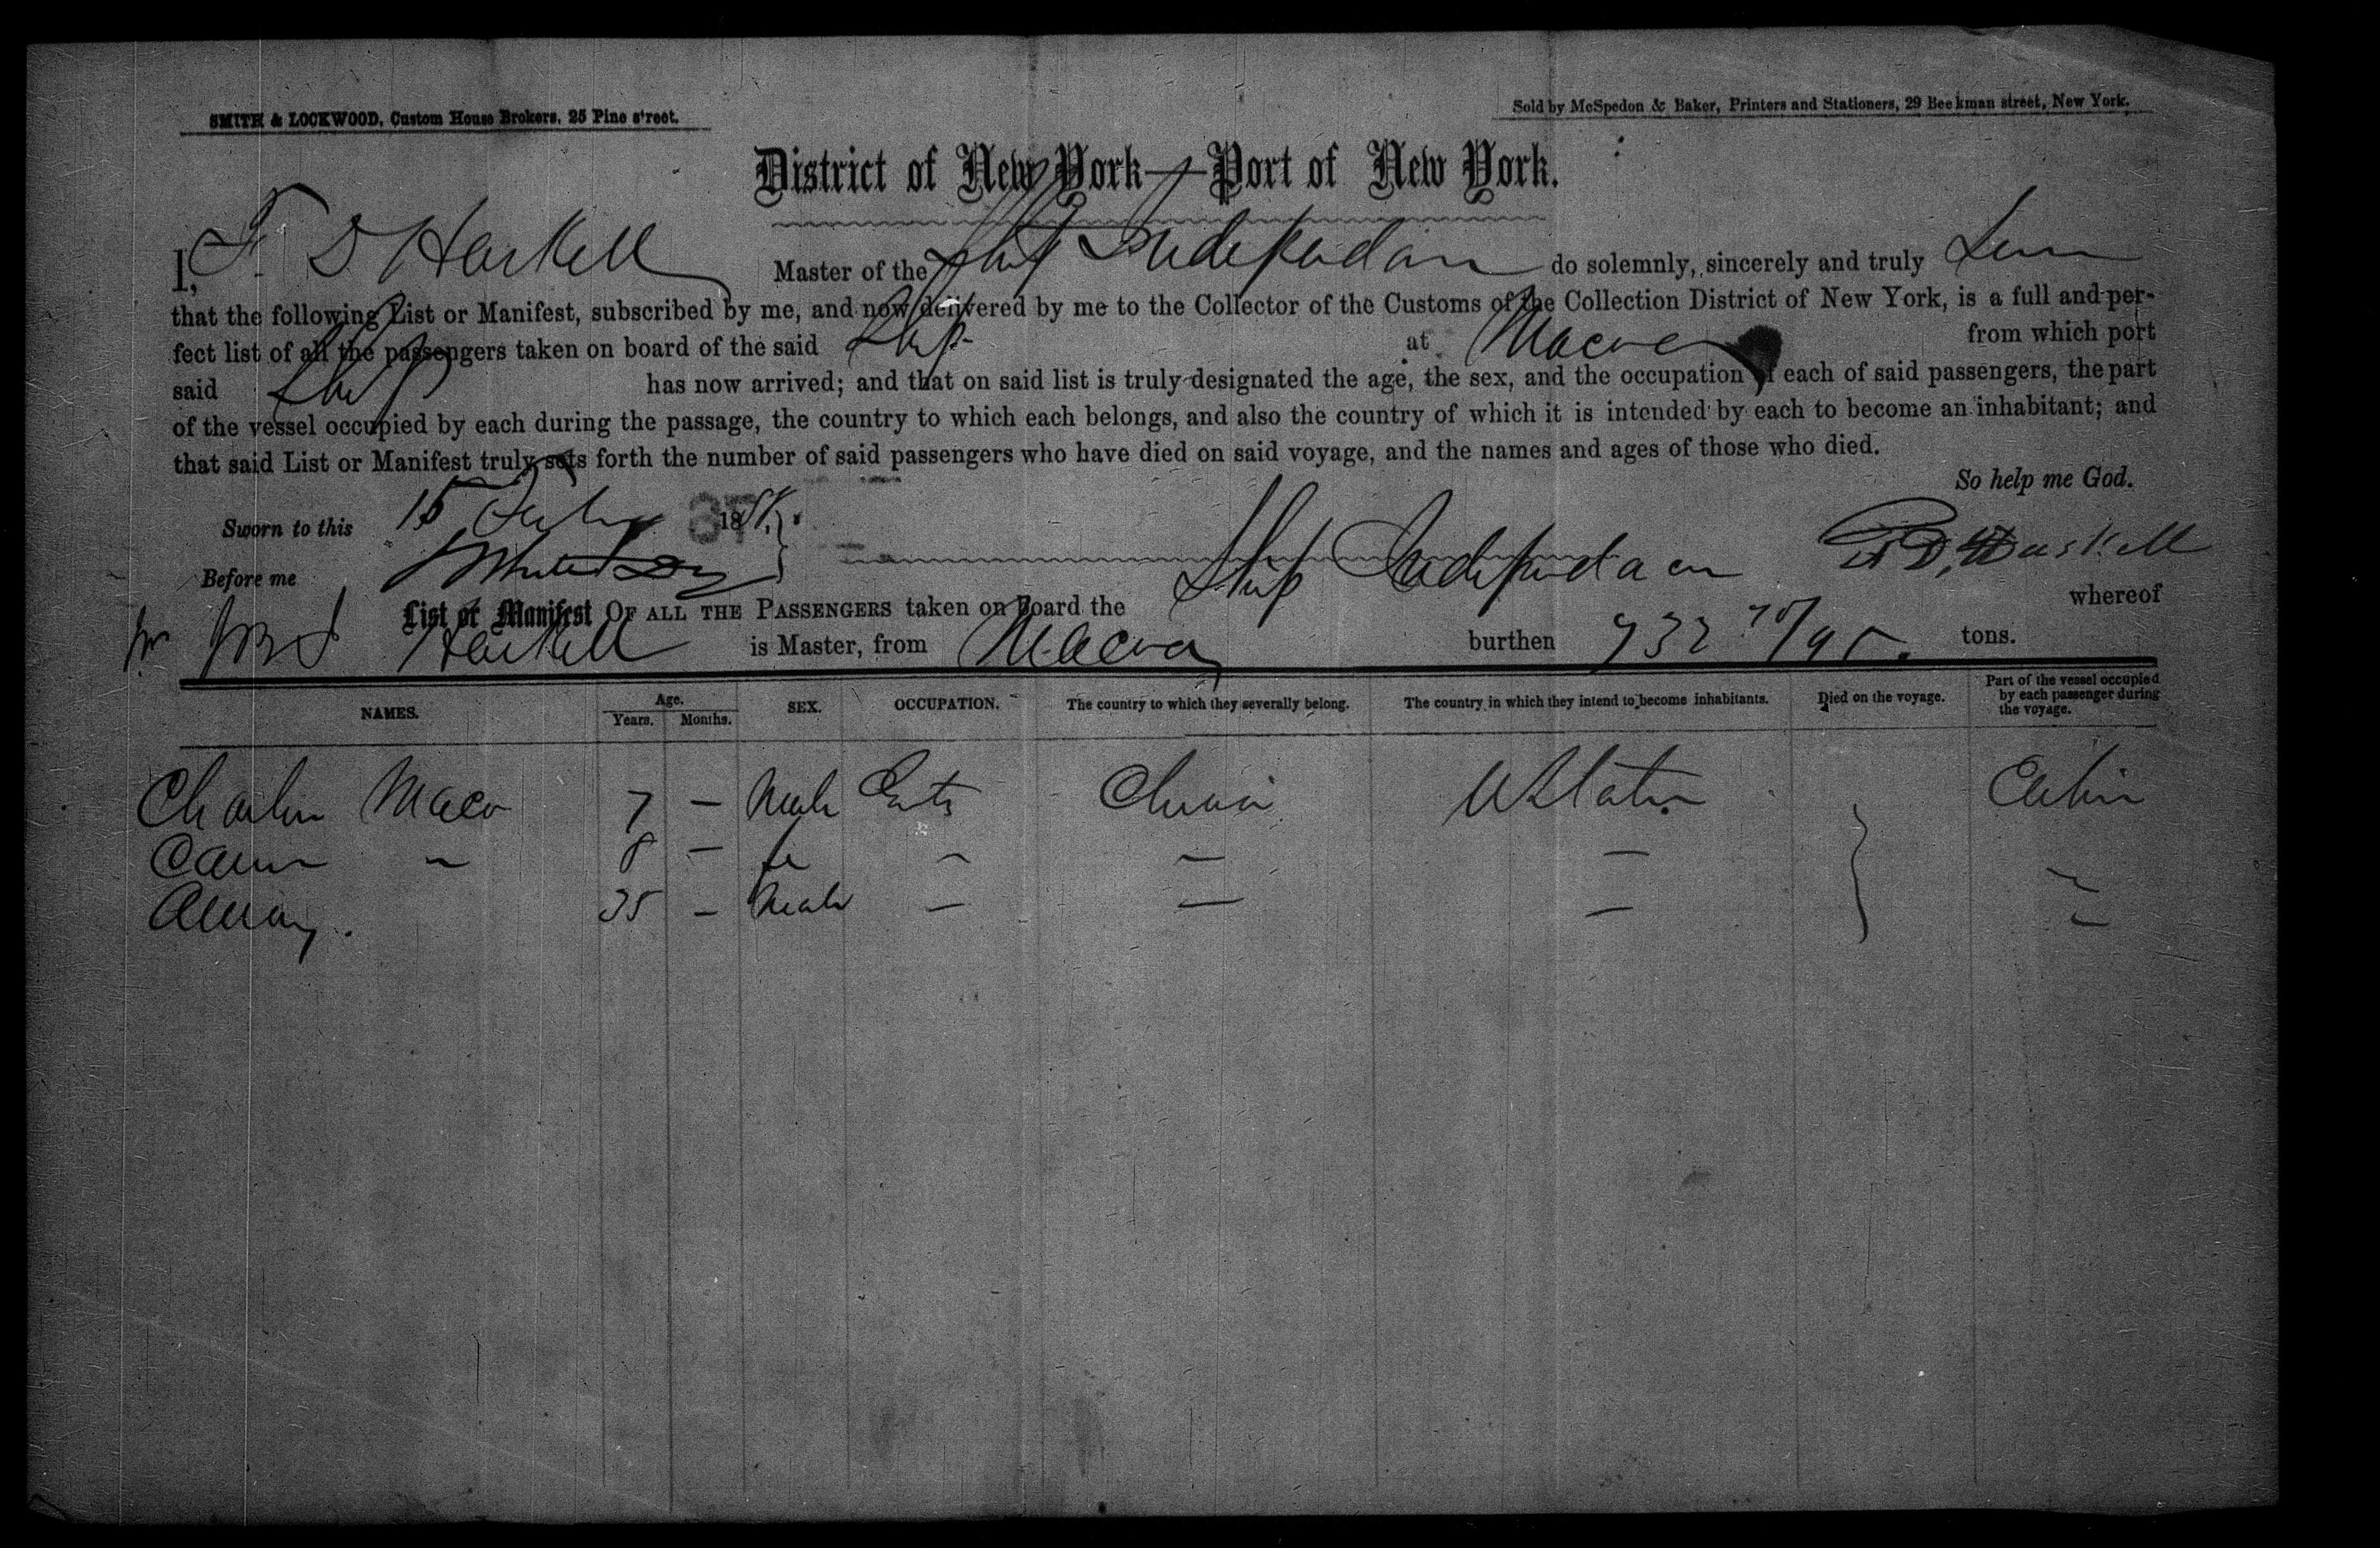 SMITH & LOCKWOOD, Custom House Brokers, 25 Pine street.
Sold by McSpedon & Baker, Printers and Stationers, 29 Beekman street, New York.
District of New York—Port of New York.
I, F. D Haskell Master of the Ship Independan do solemnly, sincerely and truly
that the following List or Manifest, subscribed by me, and now delivered by me to the Collector of the Customs of the Collection District of New York, is a full and per-
fect list of all the passengers taken on board of the said Ship at Macao from which port
said Ship has now arrived; and that on said list is truly designated the age, the sex, and the occupation of each of said passengers, the part
of the vessel occupied by each during the passage, the country to which each belongs, and also the country of which it is intended by each to become an inhabitant; and
that said List or Manifest truly sets forth the number of said passengers who have died on said voyage, and the names and ages of those who died.
So help me God.
Sworn to this 15 18
37
Before me
Haskell
List or Manifest OF ALL THE PASSENGERS taken on board the Ship Independacn whereof
Haskell is Master, from Macao burthen 732 70/95 tons.
NAMES. Age. Years. Months. SEX. OCCUPATION. The country to which they severally belong. The country in which they intend to become inhabitants. Died on the voyage. Part of the vessel occupied by each passenger during the voyage.
Charles Maco 7 — Male China U States Cabin
— 8 — fe — — — —
35 — Male — — — —